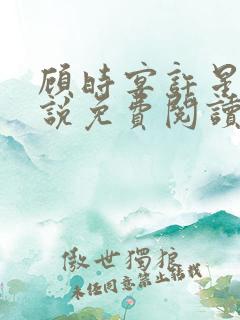 顾時宴許星
說免費閱讀
傲世獨狼
未任同意禁止轉載